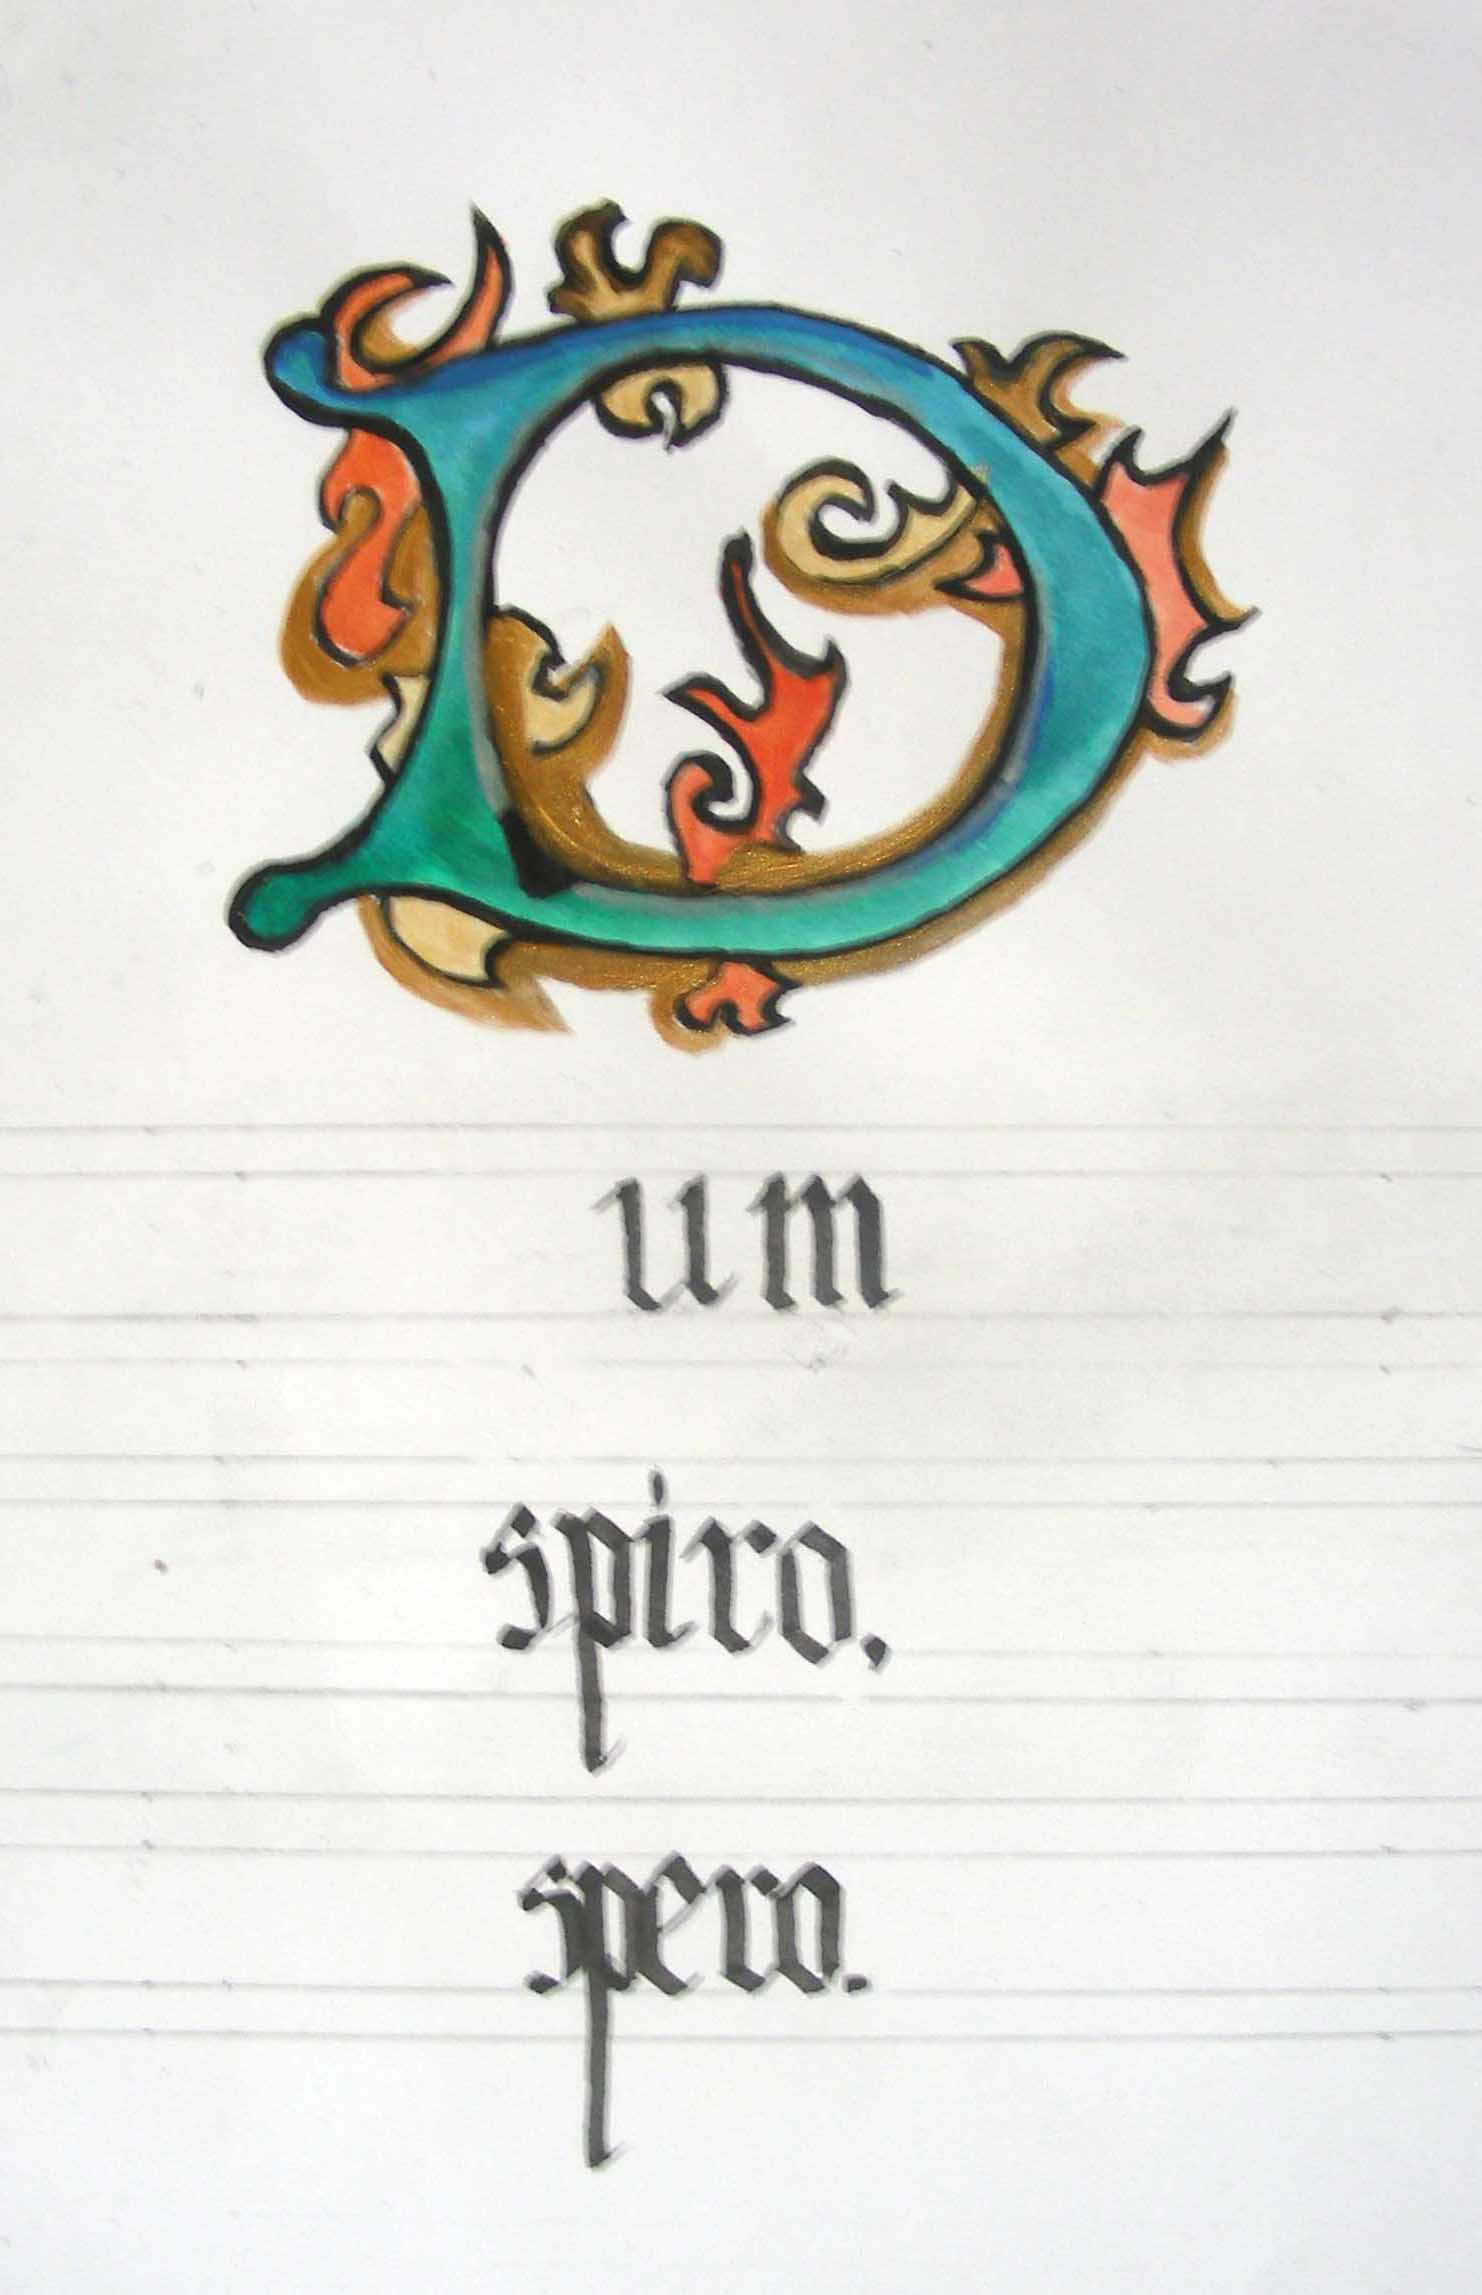 D
um
spiro,
spero.